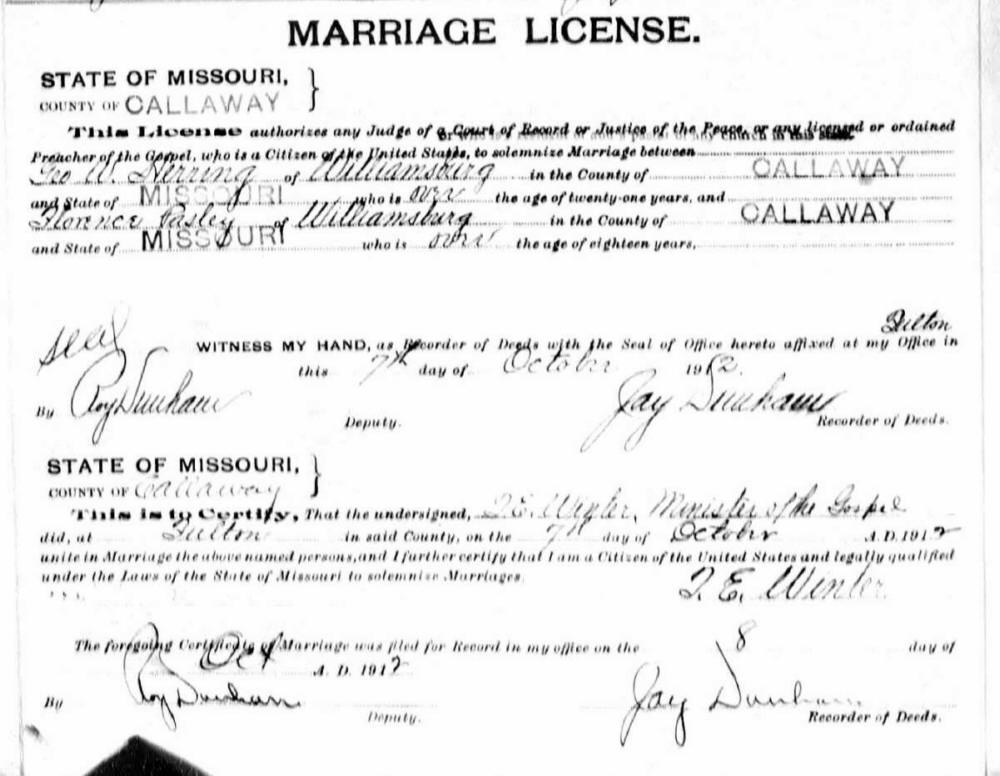 MARRIAGE LICENSE.
STATE OF MISSOURI, }
COUNTY OF CALLAWAY
This License authorizes any Judge of a Court of Record or Justice of the Peace, or any licensed or ordained
Preacher of the Gospel, who is a Citizen of the United States, to solemnize Marriage between
Geo W. Herring of Williamsburg in the County of CALLAWAY
and State of MISSOURI who is over the age of twenty-one years, and
Florence Pasley of Williamsburg in the County of CALLAWAY
and State of MISSOURI who is over the age of eighteen years,
Fulton
seal WITNESS MY HAND, as Recorder of Deeds with the Seal of Office hereto affixed at my Office in
this 7th day of October 1912.
By Roy Dunham Jay Dunham
Deputy. Recorder of Deeds.
STATE OF MISSOURI, }
COUNTY OF Callaway
This is to Certify, That the undersigned, T. E. Winter, Minister of the Gospel
did, at Fulton in said County, on the 7th day of October A. D. 1912
unite in Marriage the above named persons, and I further certify that I am a Citizen of the United States and legally qualified
under the Laws of the State of Missouri to solemnize Marriages.
T. E. Winter
The foregoing Certificate of Marriage was filed for Record in my office on the 8 day of
Oct A. D. 1912
By Roy Dunham Jay Dunham
Deputy. Recorder of Deeds.